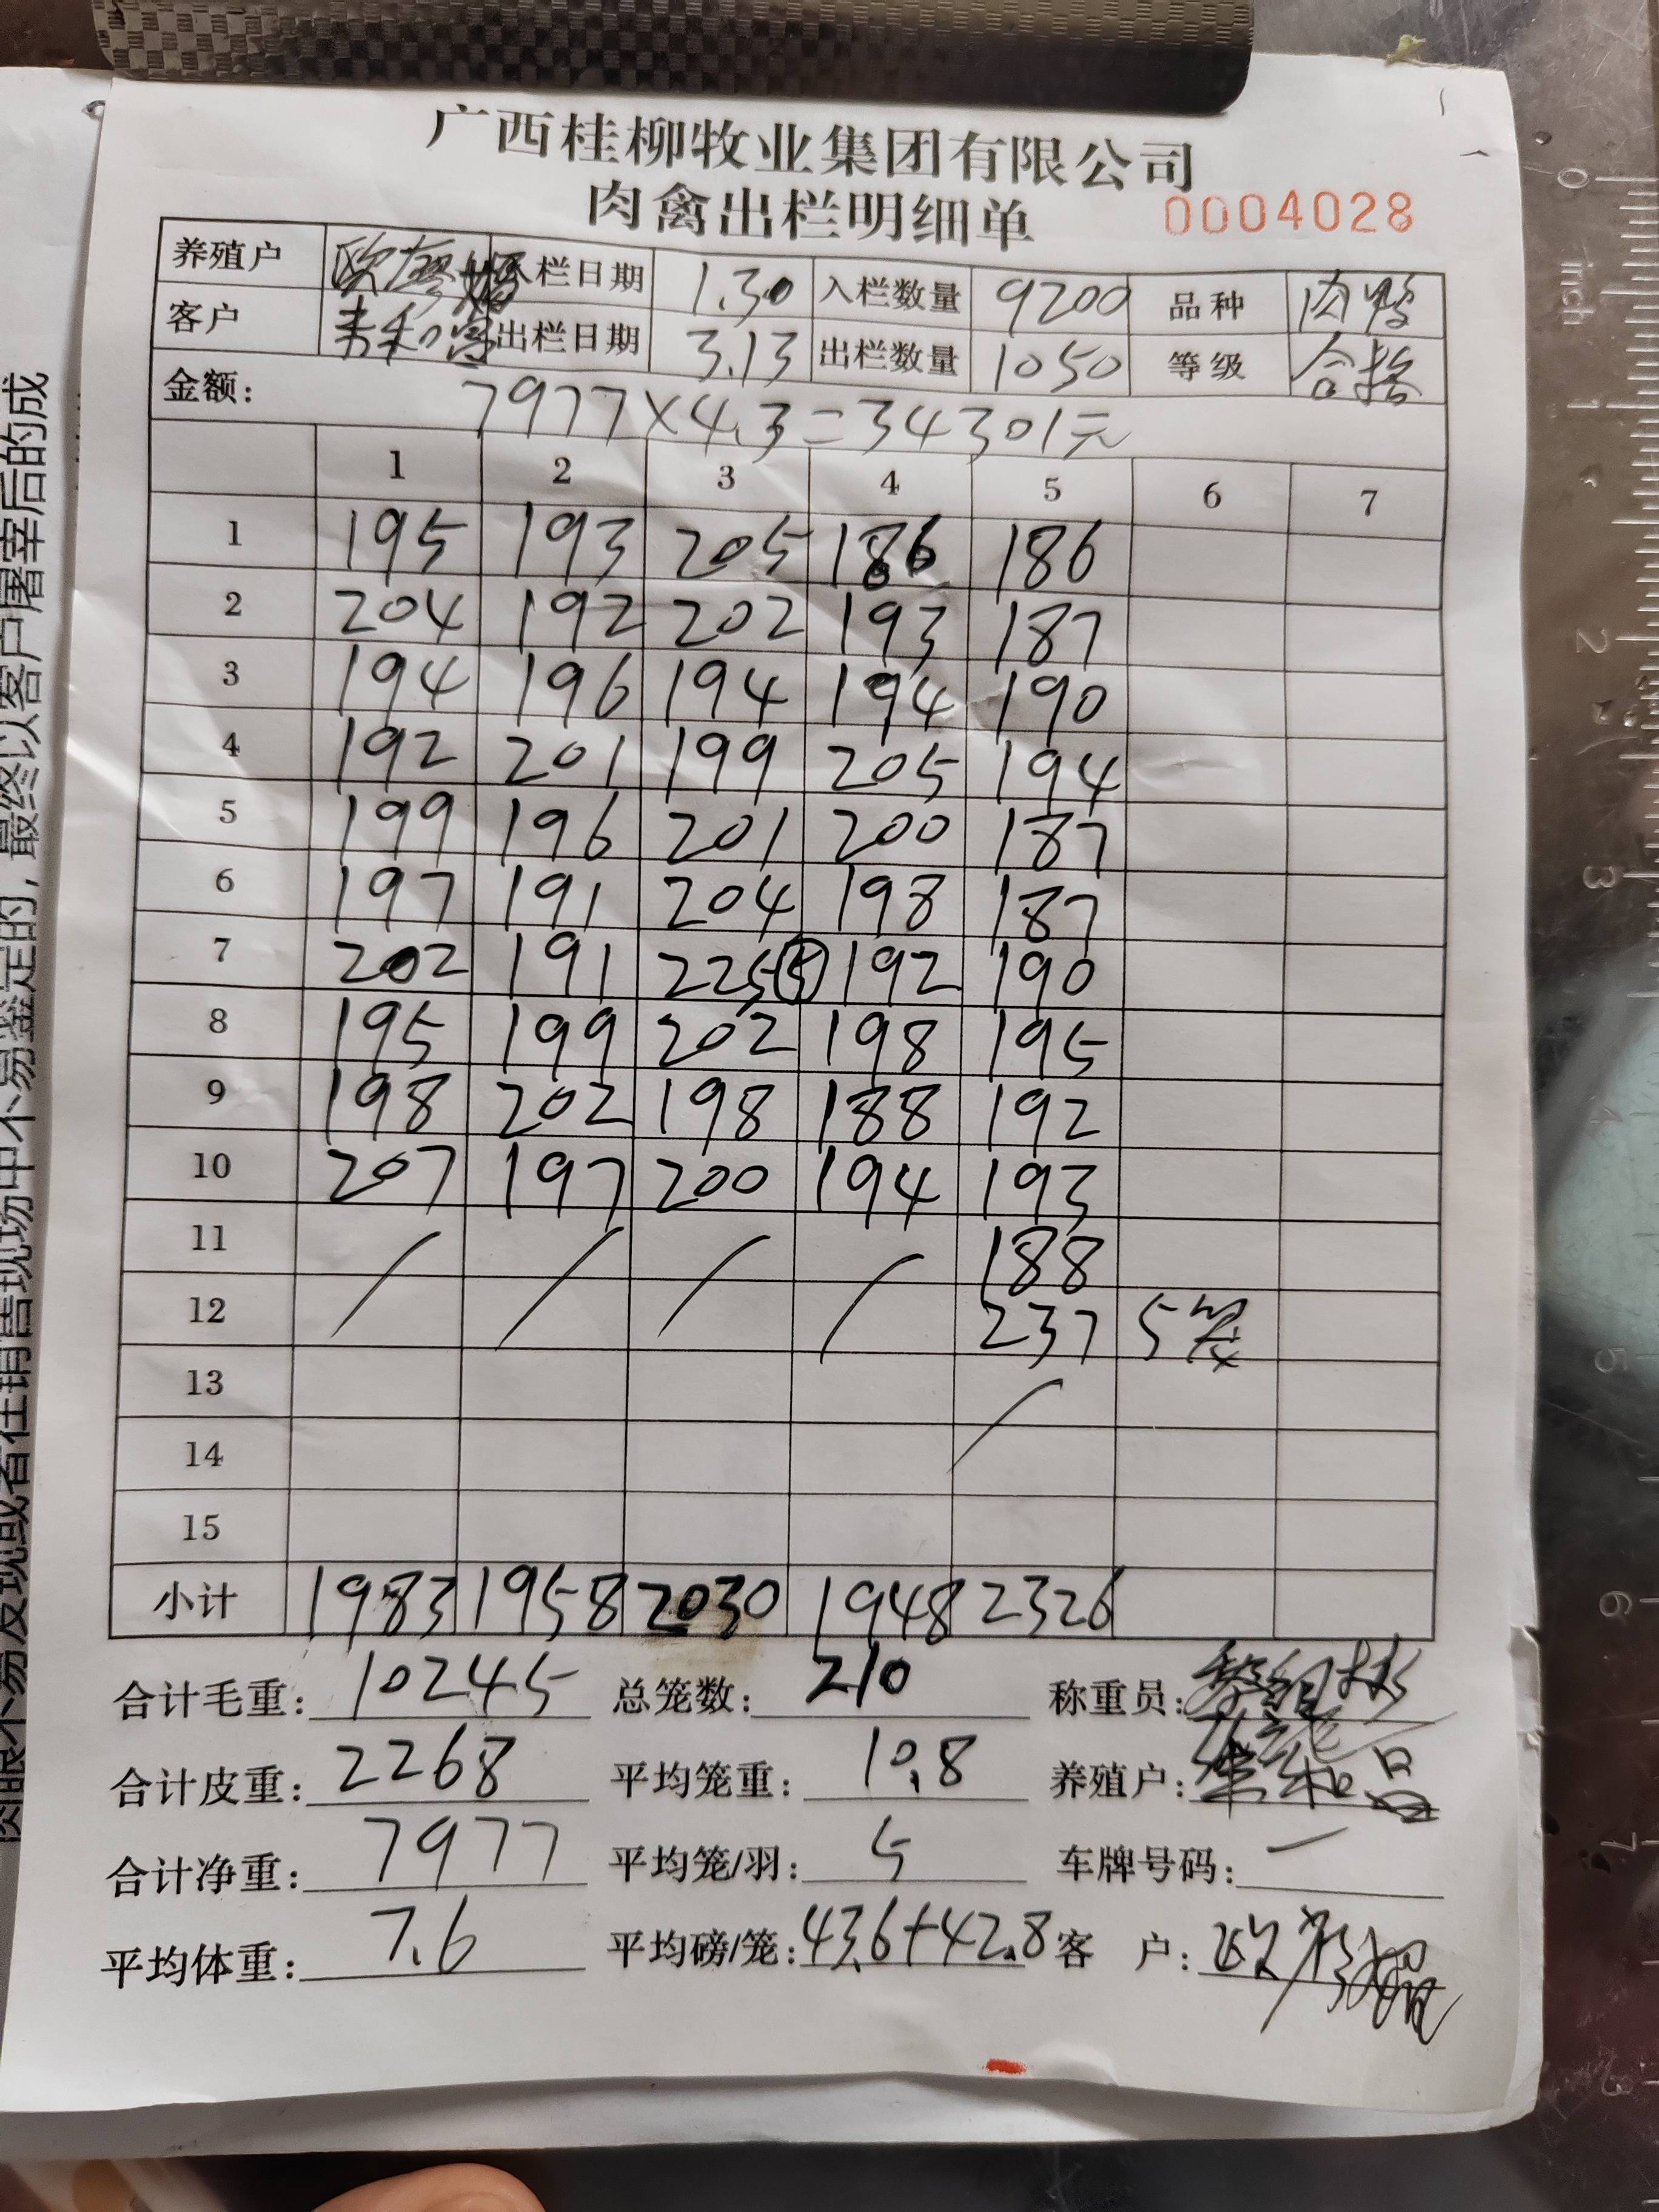 广西桂柳牧业集团有限公司
肉禽出栏明细单 0004028
养殖户 入栏日期 1.30 入栏数量 9200 品种 肉鸭
客户 出栏日期 3.13 出栏数量 1050 等级 合格
金额: 7977×4.3=34301元
1 2 3 4 5 6 7
1 195 193 205 186 186
2 204 192 202 193 187
3 194 196 194 194 190
4 192 201 199 205 194
5 199 196 201 200 187
6 197 191 204 198 187
7 202 191 225 192 190
8 195 199 202 198 195
9 198 202 198 188 192
10 207 197 200 194 193
11 / / / / 188
12 237 5笼
13 /
14
15
小计 1983 1958 2030 1948 2326
合计毛重: 10245 总笼数: 210 称重员:
合计皮重: 2268 平均笼重: 10.8 养殖户:
合计净重: 7977 平均笼/羽: 5 车牌号码: 一
平均体重: 7.6 平均磅/笼: 43.6+42.8 客 户:
肉眼不易发现或者在销售现场中不易鉴定的,最终以客户屠宰后的成
inch
0
1
2
3
4
5
6
7